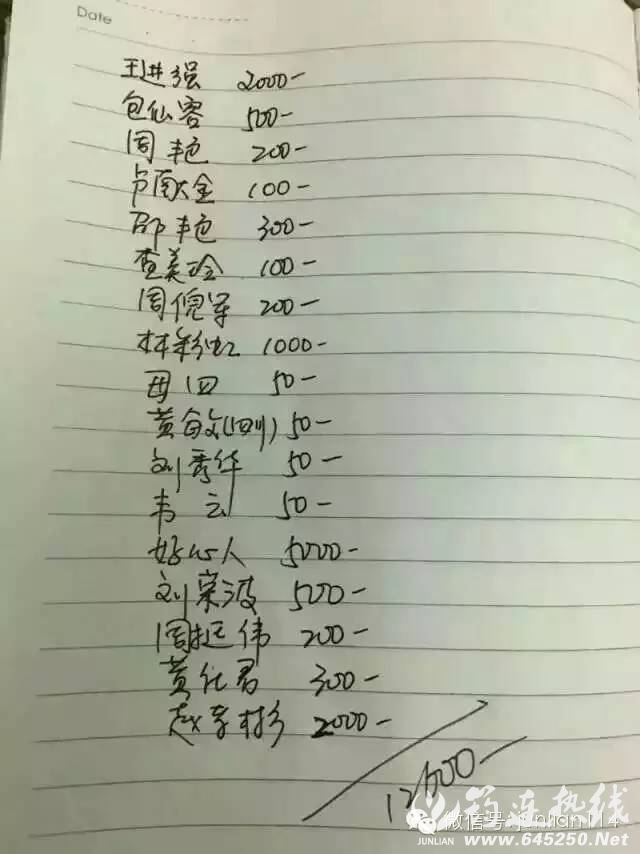 Date
王进强 2000-
包仙客 500-
周艳 200-
100-
邵艳 300-
查美玲 100-
周倪军 200-
林彩虹 1000-
田四 50-
黄自文(四川) 50-
刘秀华 50-
韦云 50-
好心人 5000-
刘宗波 500-
周挺伟 200-
黄仕君 300-
赵孝彬 2000-
12600-
筠连热线
JUNLIAN
微信号:junlian114
www.645250.Net